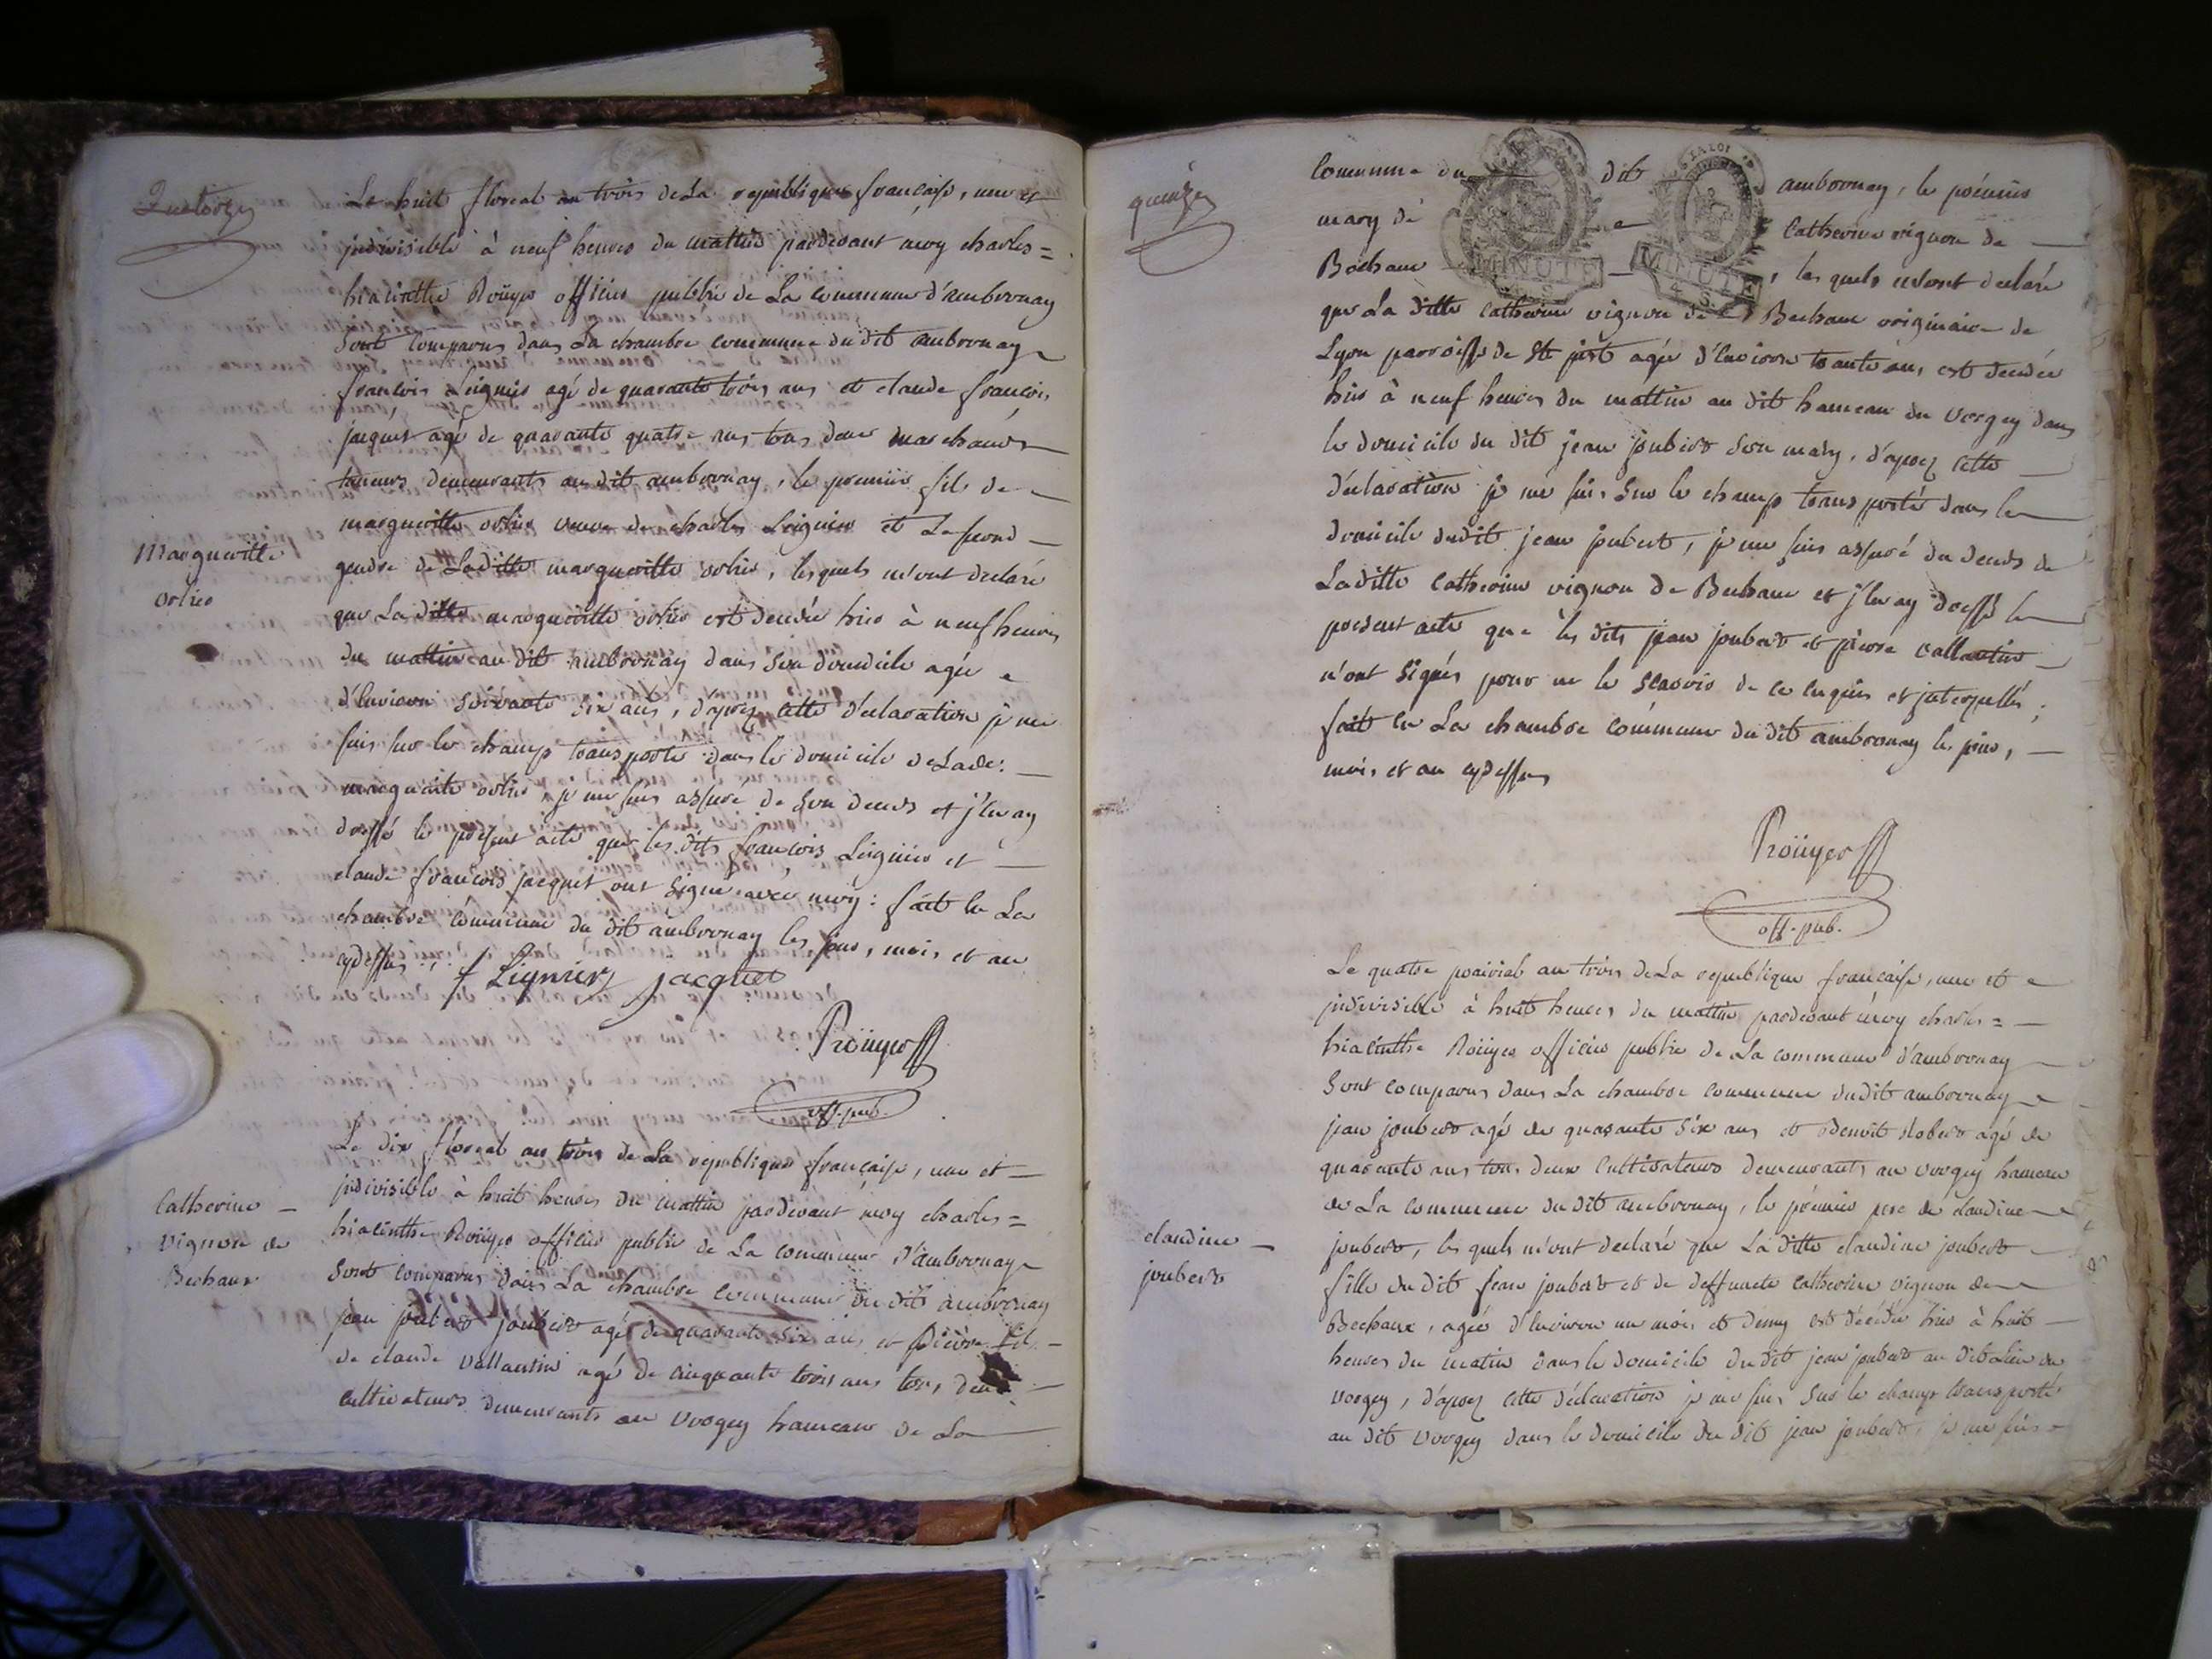 Quatorze
Le huit floreal an trois de La republique française, une et
jndivisible à neuf heures du mattin pardevant moy charles=
hiacinthe Roüyer officier public de La commune d'ambronay
Sont comparus dans La chambre commune du dit ambronay
françois Leignier agé de quarante trois ans et claude françois
jacquet agé de quarante quatre ans tous deux marchands
taneurs demeurants au dit ambronay, le premier fils de
margueritte orlier veuve de charles Leignier et Le second
Margueritte
orlier
gendre de Laditte margueritte orlier, lesquels m'ont declaré
que La ditte margueritte orlier est decedée hier à neuf heures
du mattin au dit ambronay dans son domicile agée
d'environ soixante six ans, d'aprez cette déclaration je me
suis sur le champ transporté dans le domicile de Lade:
marguerite orlier, je me suis assuré de son deces et j'en ay
dressé le présent acte que les dits françois Leignier et
claude françois jacquet ont signé avec moy: fait en La
chambre commune du dit ambronay les jour, mois et an
cydessus. f Lignier jacquet
Roüyer
off. pub.
Le dix floreal an trois de La republique française, une et
jndivisible à huit heures du mattin pardevant moy charles=
Catherine
Vignon de
Bechaux
hiacinthe Roüyer officier public de La commune d'ambronay
Sont comparus dans La chambre commune du dit ambronay
jean joubert agé de quarante six ans et pierre fils
de claude Vallantin agé de cinquante trois ans tous deux
cultivateurs demeurants au Vorgey hameau de La
quinze
commune du dit ambronay, le prémier
mary de Catherine vignon de
Bechaux, les quels m'ont declaré
que La ditte Catherine vignon de Bechaux originaire de
Lyon parroisse de St just agée d'environ trante ans, est decedée
hier à neuf heures du mattin au dit hameau du Vorgey dans
le domicile du dit jean joubert son mary, d'aprez cette
déclaration je me suis sur le champ transporté dans le
domicile dudit jean joubert, je me suis assuré du deces de
Laditte Catherine vignon de Bechaux et j'en ay dressé le
present acte que les dits jean joubert et pierre vallantin
n'ont signés pour ne le scavoir de ce enquis et jnterpellés;
fait en La chambre commune du dit ambronay les jour,
mois et an cydessus
Roüyer
off. pub.
Le quatre prairial an trois de La republique française, une et
jndivisible à huit heures du mattin pardevant moy charles=
hiacinthe Roüyer officier public de La commune d'ambronay
Sont comparus dans La chambre commune dudit ambronay
jean joubert agé de quarante six ans et Benoit Robert agé de
quarante ans tous deux Cultivateurs demeurants au vorgey hameau
de La commune du dit ambronay, le prémier pere de claudine
claudine
joubert
joubert, les quels m'ont declaré que La ditte claudine joubert
fille du dit jean joubert et de deffuncte Catherine vignon de
Bechaux, agée d'environ un mois et demy est décédée hier à huit
heures du matin dans le domicile du dit jean joubert au dit Lieu du
vorgey, d'aprez cette déclaration je me suis sur le champ transporté
au dit vorgey dans le domicile du dit jean joubert, je me suis